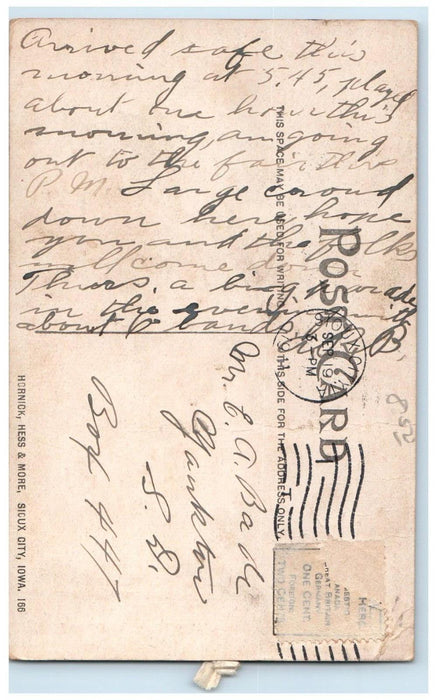 Arrived safe this
morning at 5.45, played
about one hour this
morning, am going
out to the fair this
P.M. Large crowd
down here, hope
you and the folks
will come down
Thurs. a big parade
in the evening
about 8 bands. B,
THIS SPACE MAY BE USED FOR WRITING
THIS SIDE FOR THE ADDRESS ONLY.
POST CARD
SEP 19
PM
Mr. E. A. Bade
Yankton
S. D.
Box 447
852
HERE
GREAT BRITAIN
GERMANY
ONE CENT.
FOREIGN
TWO CENTS
HORNICK, HESS & MORE, SIOUX CITY, IOWA. 166